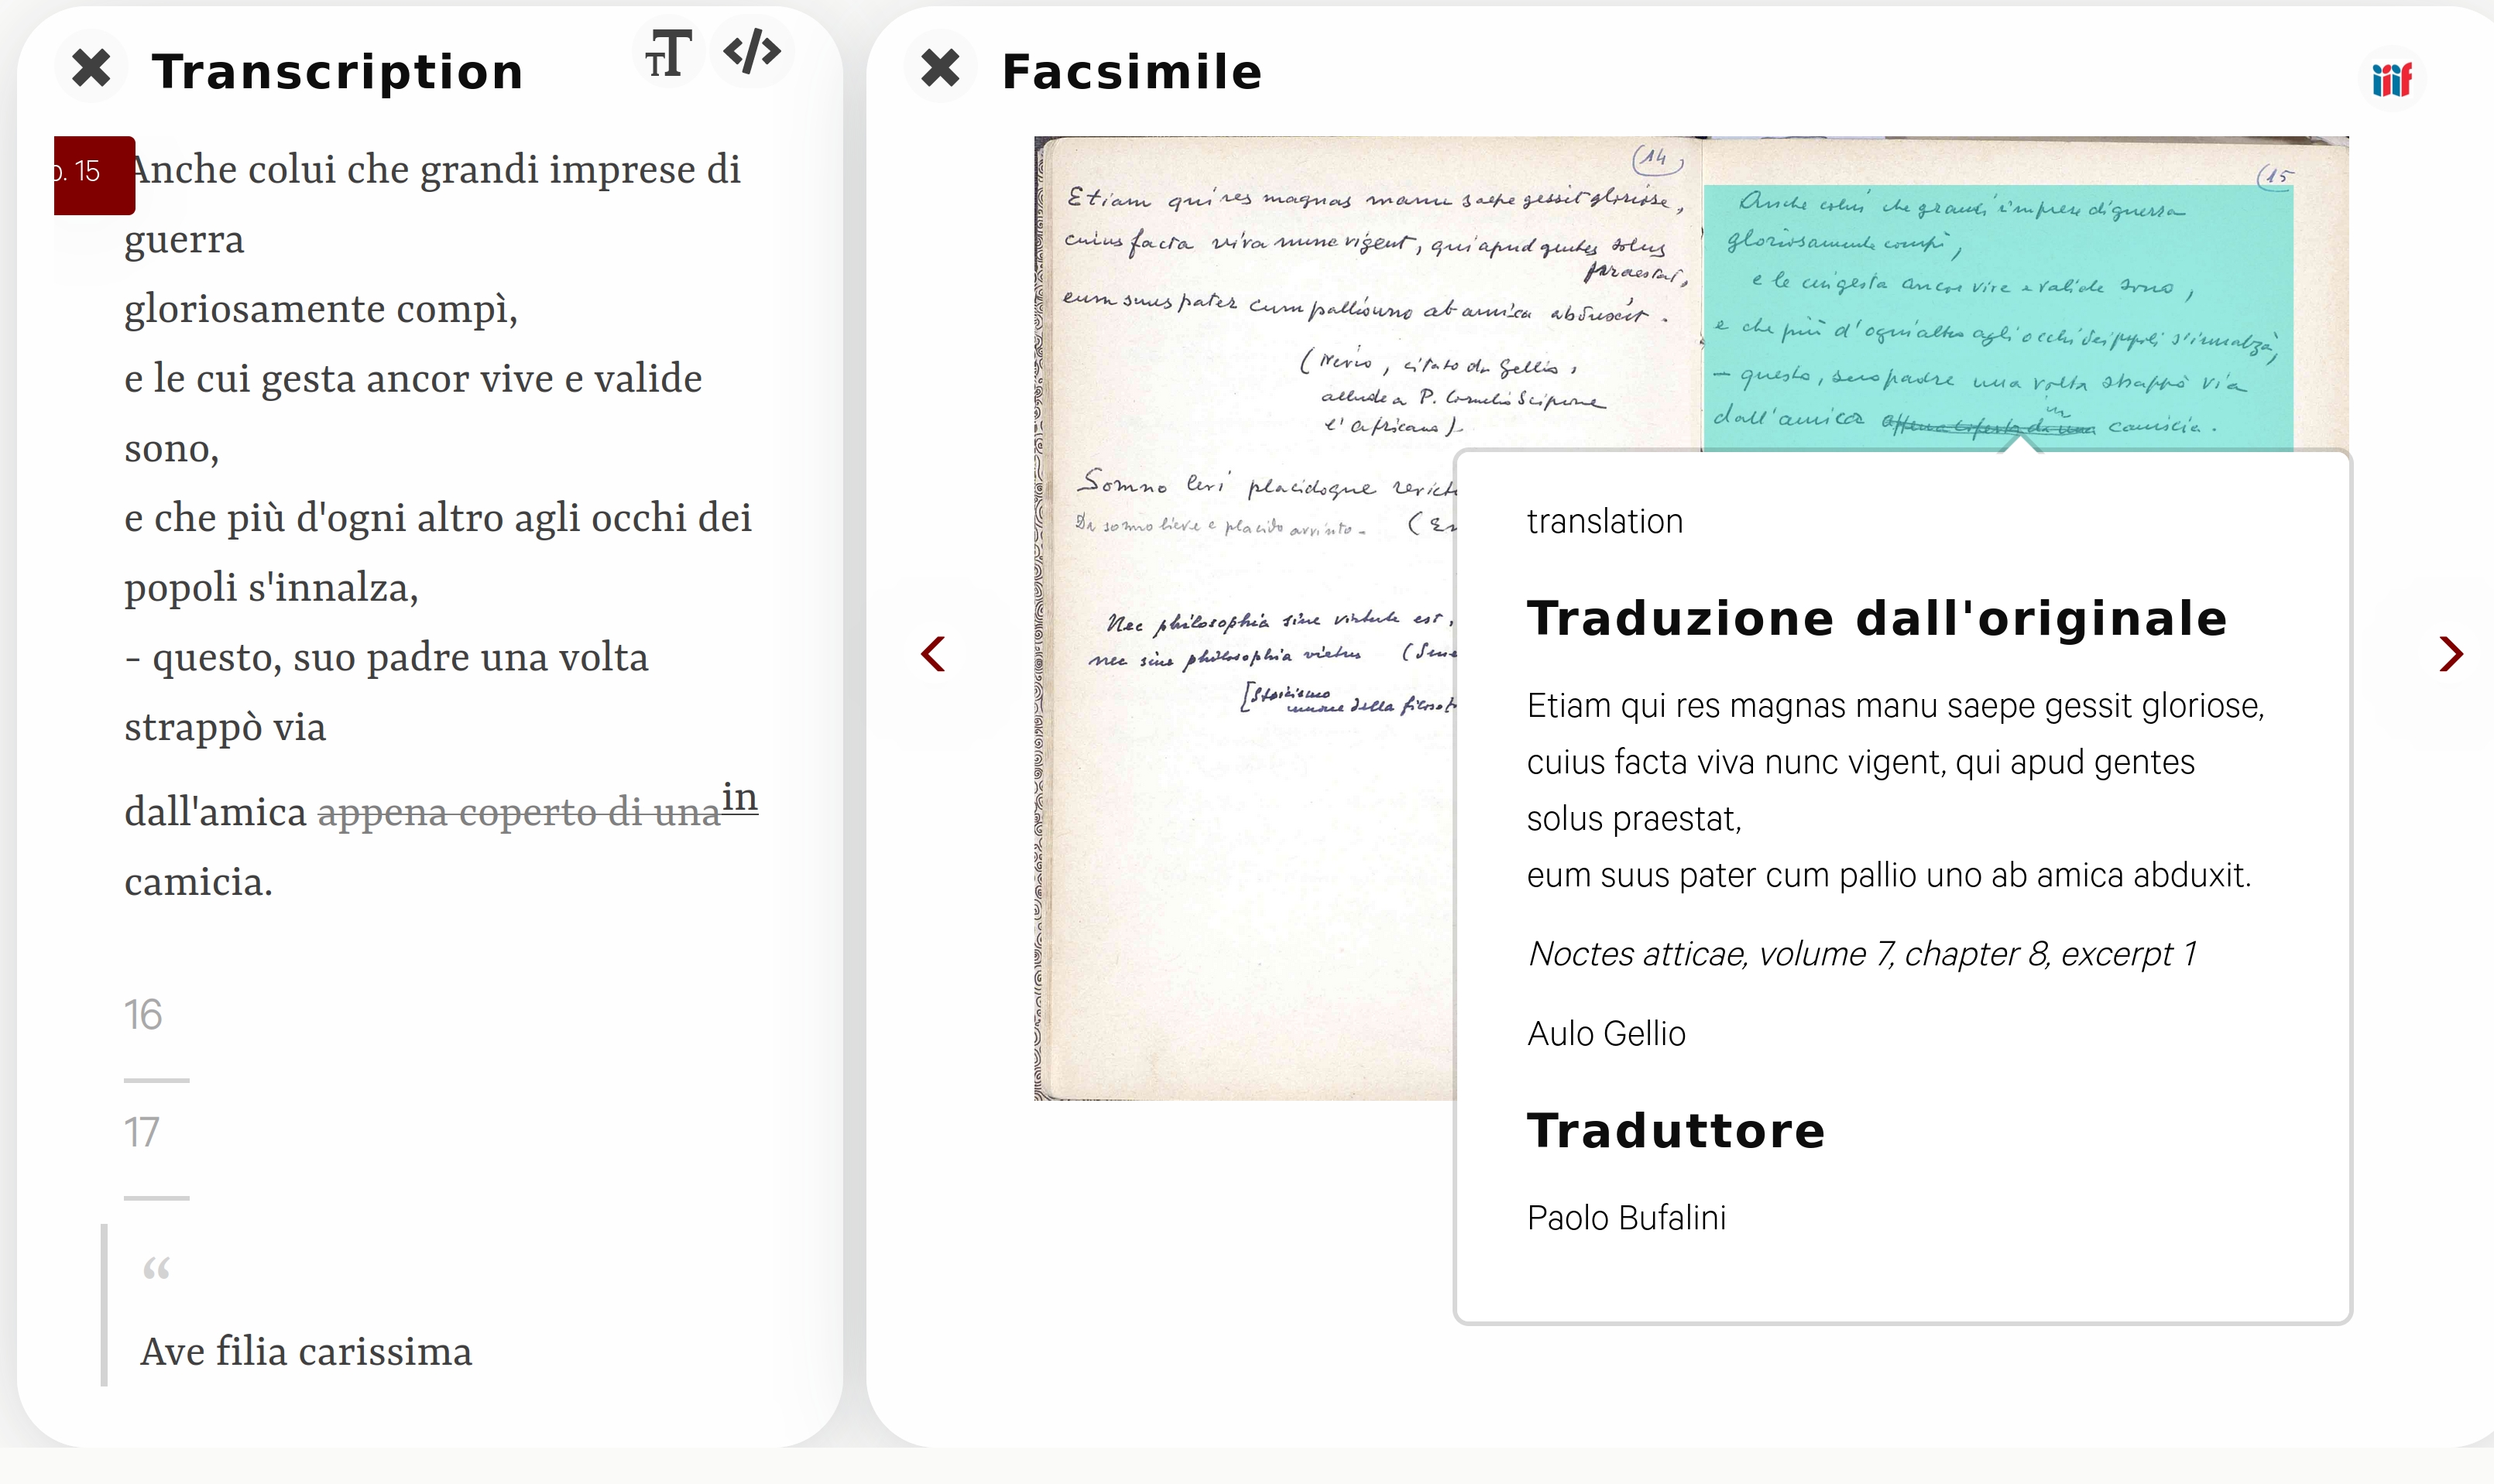 Transcription
p. 15
Anche colui che grandi imprese di
guerra
gloriosamente compì,
e le cui gesta ancor vive e valide
sono,
e che più d'ogni altro agli occhi dei
popoli s'innalza,
- questo, suo padre una volta
strappò via
dall'amica appena coperto di una in
camicia.
16
17
“
Ave filia carissima
Facsimile
iiif
14
Etiam qui res magnas manu saepe gessit gloriose,
cuius facta viva nunc vigent, qui apud gentes solus
praestat,
eum suus pater cum pallio uno ab amica abduxit.
(Nevio, citato da Gellio,
allude a P. Cornelio Scipione
l'Africano)
Somno levi placidoque
Da sonno lieve e placido avvinto -
Nec philosophia sine virtute est,
nec sine philosophia virtus
[Stoicismo
unione della
15
Anche colui che grandi imprese di guerra
gloriosamente compì,
e le cui gesta ancor vive e valide sono,
e che più d'ogni altro agli occhi dei popoli s'innalza,
- questo, suo padre una volta strappò via
in
dall'amica appena coperto di una camicia.
translation
Traduzione dall'originale
Etiam qui res magnas manu saepe gessit gloriose,
cuius facta viva nunc vigent, qui apud gentes
solus praestat,
eum suus pater cum pallio uno ab amica abduxit.
Noctes atticae, volume 7, chapter 8, excerpt 1
Aulo Gellio
Traduttore
Paolo Bufalini